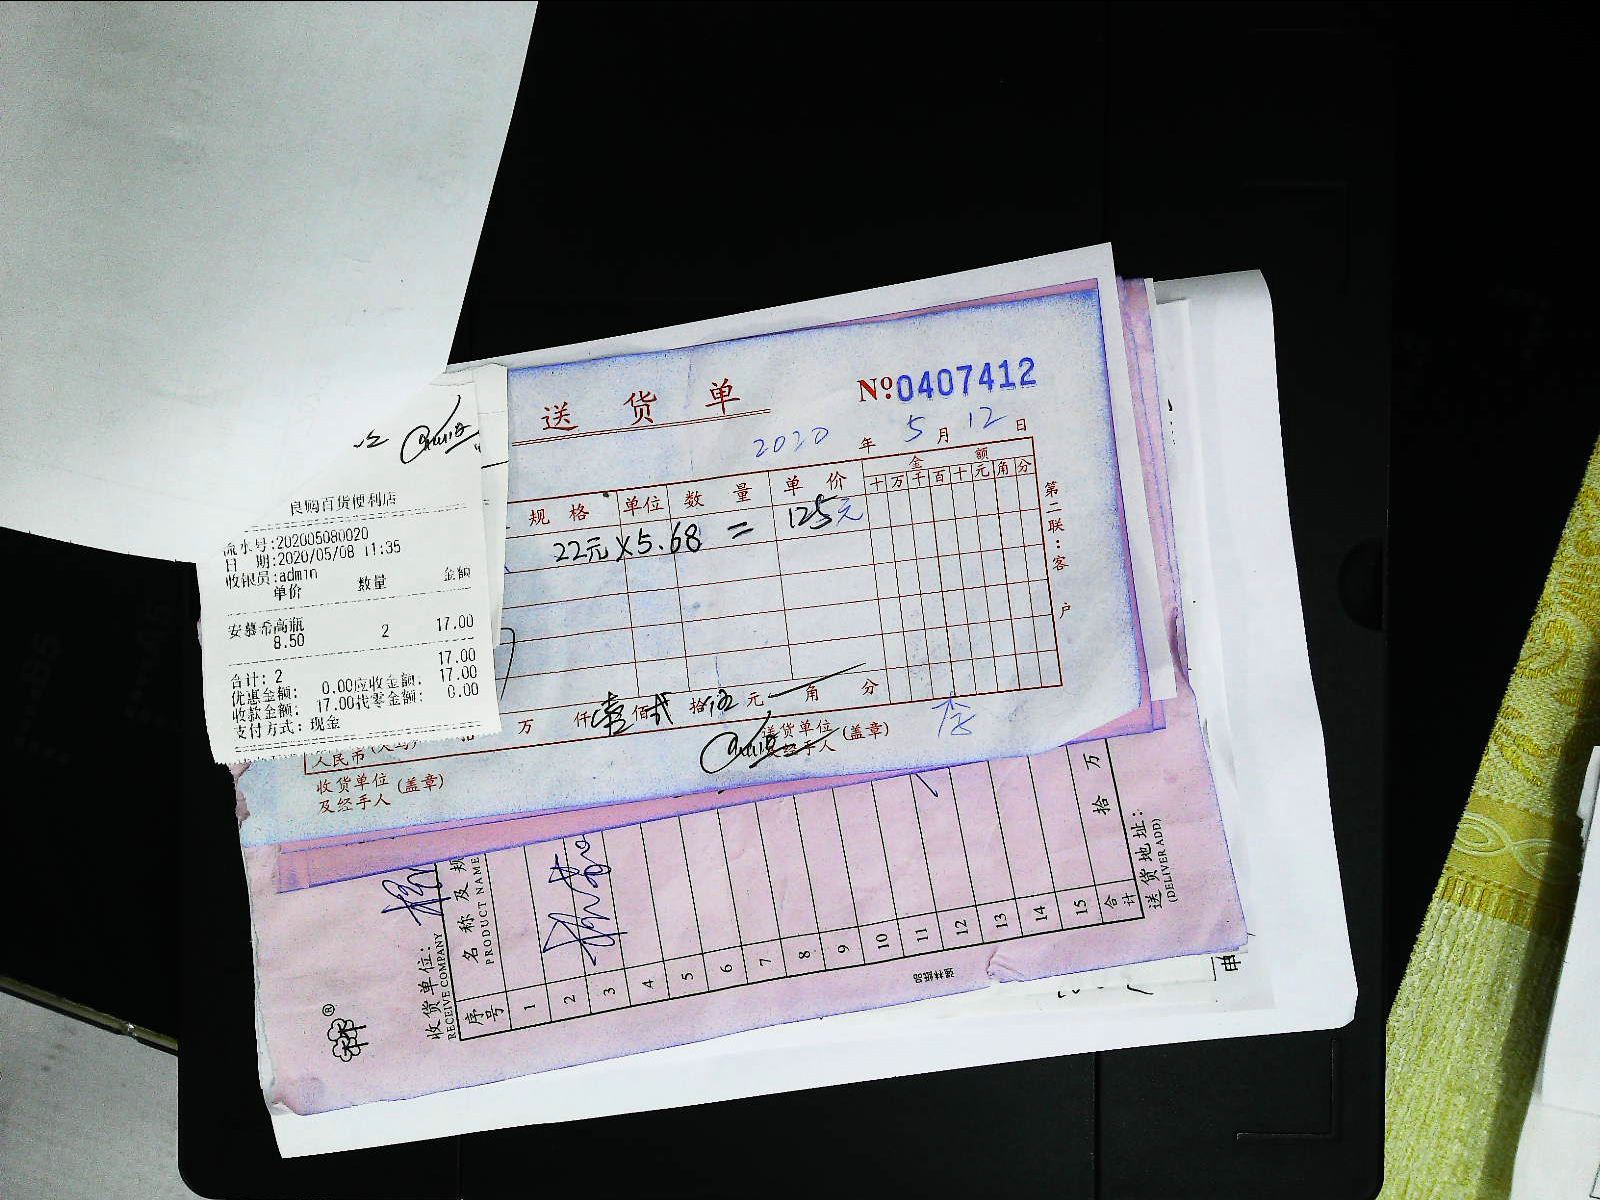 良购百货便利店
流水号:202005080020
日 期:2020/05/08 11:35
收银员:admin
单价 数量 金额
安慕希高瓶
8.50 2 17.00
17.00
合计: 2
优惠金额: 0.00应收金额: 17.00
收款金额: 17.00找零金额: 0.00
支付方式: 现金
送 货 单
№0407412
2020 年 5 月 12 日
规 格 单位 数 量 单 价 金 额
十 万 千 百 十 元 角 分
22元×5.68 = 125元
第二联:客户
人民币(大写) 拾 万 仟 壹 佰 贰 拾 伍 元 角 分
收货单位
及经手人 (盖章)
送货单位
及经手人 (盖章)
收货单位:
RECEIVE COMPANY
序号 名 称 及 规
PRODUCT NAME
1
2
3
4
5
6
7
8
9
10
11
12
13
14
15
合计 拾 万
送 货 地 址:
(DELIVER ADD)
®
申